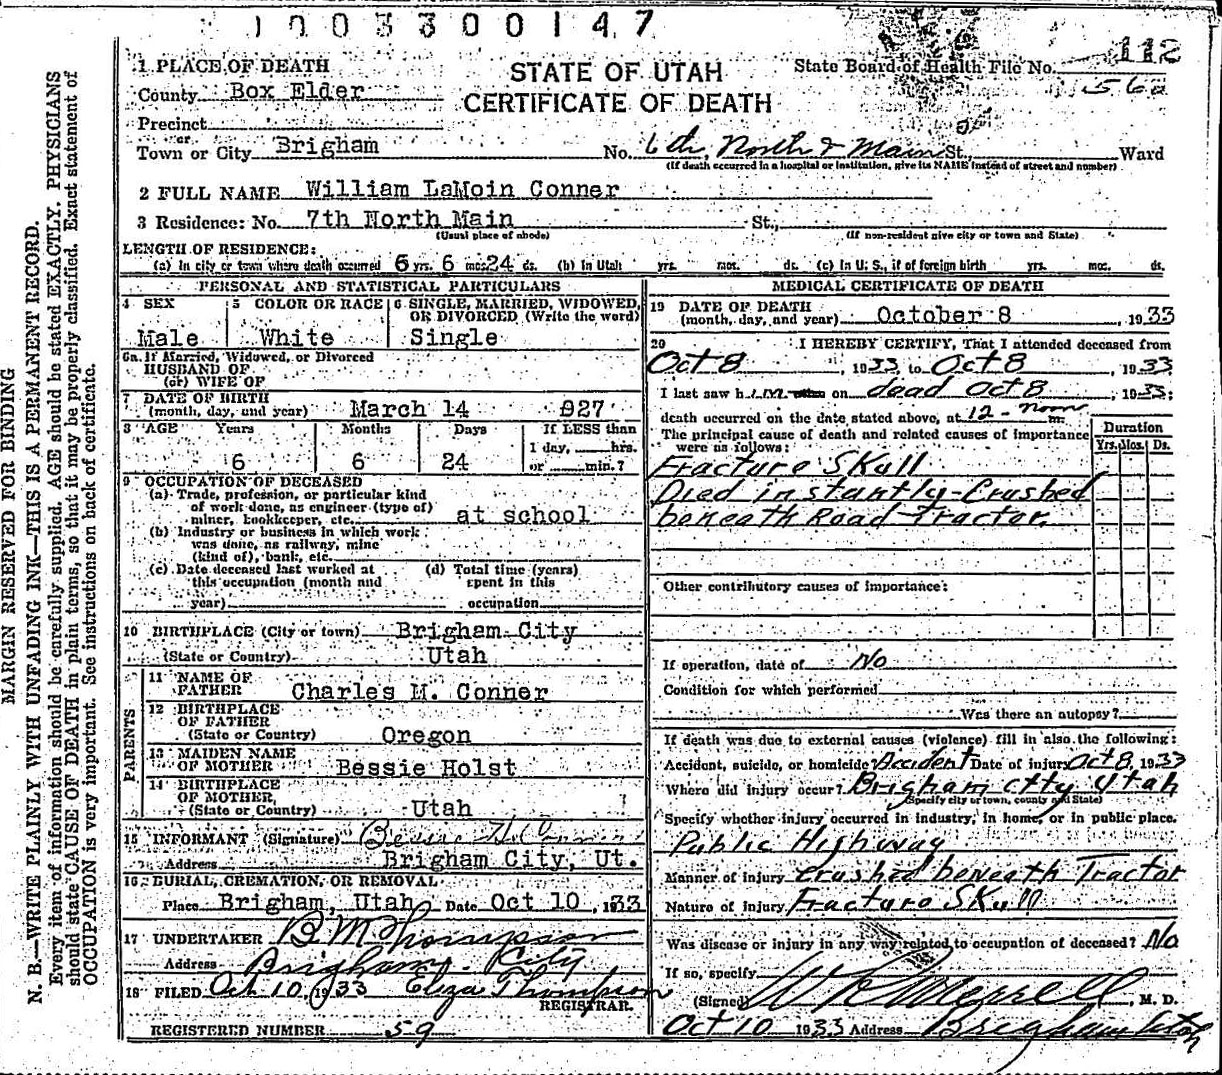 1003300147
112
1 PLACE OF DEATH
STATE OF UTAH
State Board of Health File No.
560
County Box Elder
CERTIFICATE OF DEATH
Precinct
or
Town or City Brigham No. 6th, North & Main St., Ward
(If death occurred in a hospital or institution, give its NAME instead of street and number)
2 FULL NAME William LaMoin Conner
3 Residence: No. 7th North Main St.,
(Usual place of abode) (If non-resident give city or town and State)
LENGTH OF RESIDENCE:
(a) In city or town where death occurred 6 yrs. 6 mos. 24 ds. (b) In Utah yrs. mos. ds. (c) In U. S., if of foreign birth yrs. mos. ds.
PERSONAL AND STATISTICAL PARTICULARS
4 SEX 5 COLOR OR RACE 6 SINGLE, MARRIED, WIDOWED, OR DIVORCED (Write the word)
Male White Single
6a. If Married, Widowed, or Divorced
HUSBAND OF
(or) WIFE OF
7 DATE OF BIRTH
(month, day, and year) March 14 927
8 AGE Years Months Days If LESS than
1 day, hrs.
6 6 24 or min.?
9 OCCUPATION OF DECEASED
(a) Trade, profession, or particular kind
of work done, as engineer (type of)
miner, bookkeeper, etc. at school
(b) Industry or business in which work
was done, as railway, mine
(kind of), bank, etc.
(c) Date deceased last worked at (d) Total time (years)
this occupation (month and spent in this
year) occupation
10 BIRTHPLACE (City or town) Brigham City
(State or Country) Utah
PARENTS
11 NAME OF
FATHER Charles M. Conner
12 BIRTHPLACE
OF FATHER
(State or Country) Oregon
13 MAIDEN NAME
OF MOTHER Bessie Holst
14 BIRTHPLACE
OF MOTHER,
(State or Country) Utah
15 INFORMANT (Signature) Bessie H. Conner
Address Brigham City, Ut.
16 BURIAL, CREMATION, OR REMOVAL
Place Brigham, Utah Date Oct 10, 1933
17 UNDERTAKER B M Thompson
Address Brigham City
18 FILED Oct 10, 1933 Eliza Thompson
REGISTRAR.
REGISTERED NUMBER 59
MEDICAL CERTIFICATE OF DEATH
19 DATE OF DEATH
(month, day, and year) October 8, 1933
20 I HEREBY CERTIFY, That I attended deceased from
Oct 8, 1933, to Oct 8, 1933
I last saw him on dead Oct 8, 1933;
death occurred on the date stated above, at 12-noon m.
The principal cause of death and related causes of importance Duration
were as follows: Yrs. Mos. Ds.
Fracture Skull
Died instantly-Crushed
beneath Road Tractor.
Other contributory causes of importance:
If operation, date of No
Condition for which performed
Was there an autopsy?
If death was due to external causes (violence) fill in also the following:
Accident, suicide, or homicide Accident Date of injury Oct 8, 1933
Where did injury occur? Brigham City Utah
(Specify city or town, county and State)
Specify whether injury occurred in industry, in home, or in public place.
Public Highway
Manner of injury Crushed beneath Tractor
Nature of injury Fracture Skull
Was disease or injury in any way related to occupation of deceased? No
If so, specify
(Signed) W R Merrell, M. D.
Oct 10 1933 Address Brigham Utah
MARGIN RESERVED FOR BINDING
N. B.—WRITE PLAINLY WITH UNFADING INK—THIS IS A PERMANENT RECORD.
Every item of information should be carefully supplied. AGE should be stated EXACTLY. PHYSICIANS
should state CAUSE OF DEATH in plain terms, so that it may be properly classified. Exact statement of
OCCUPATION is very important. See instructions on back of certificate.